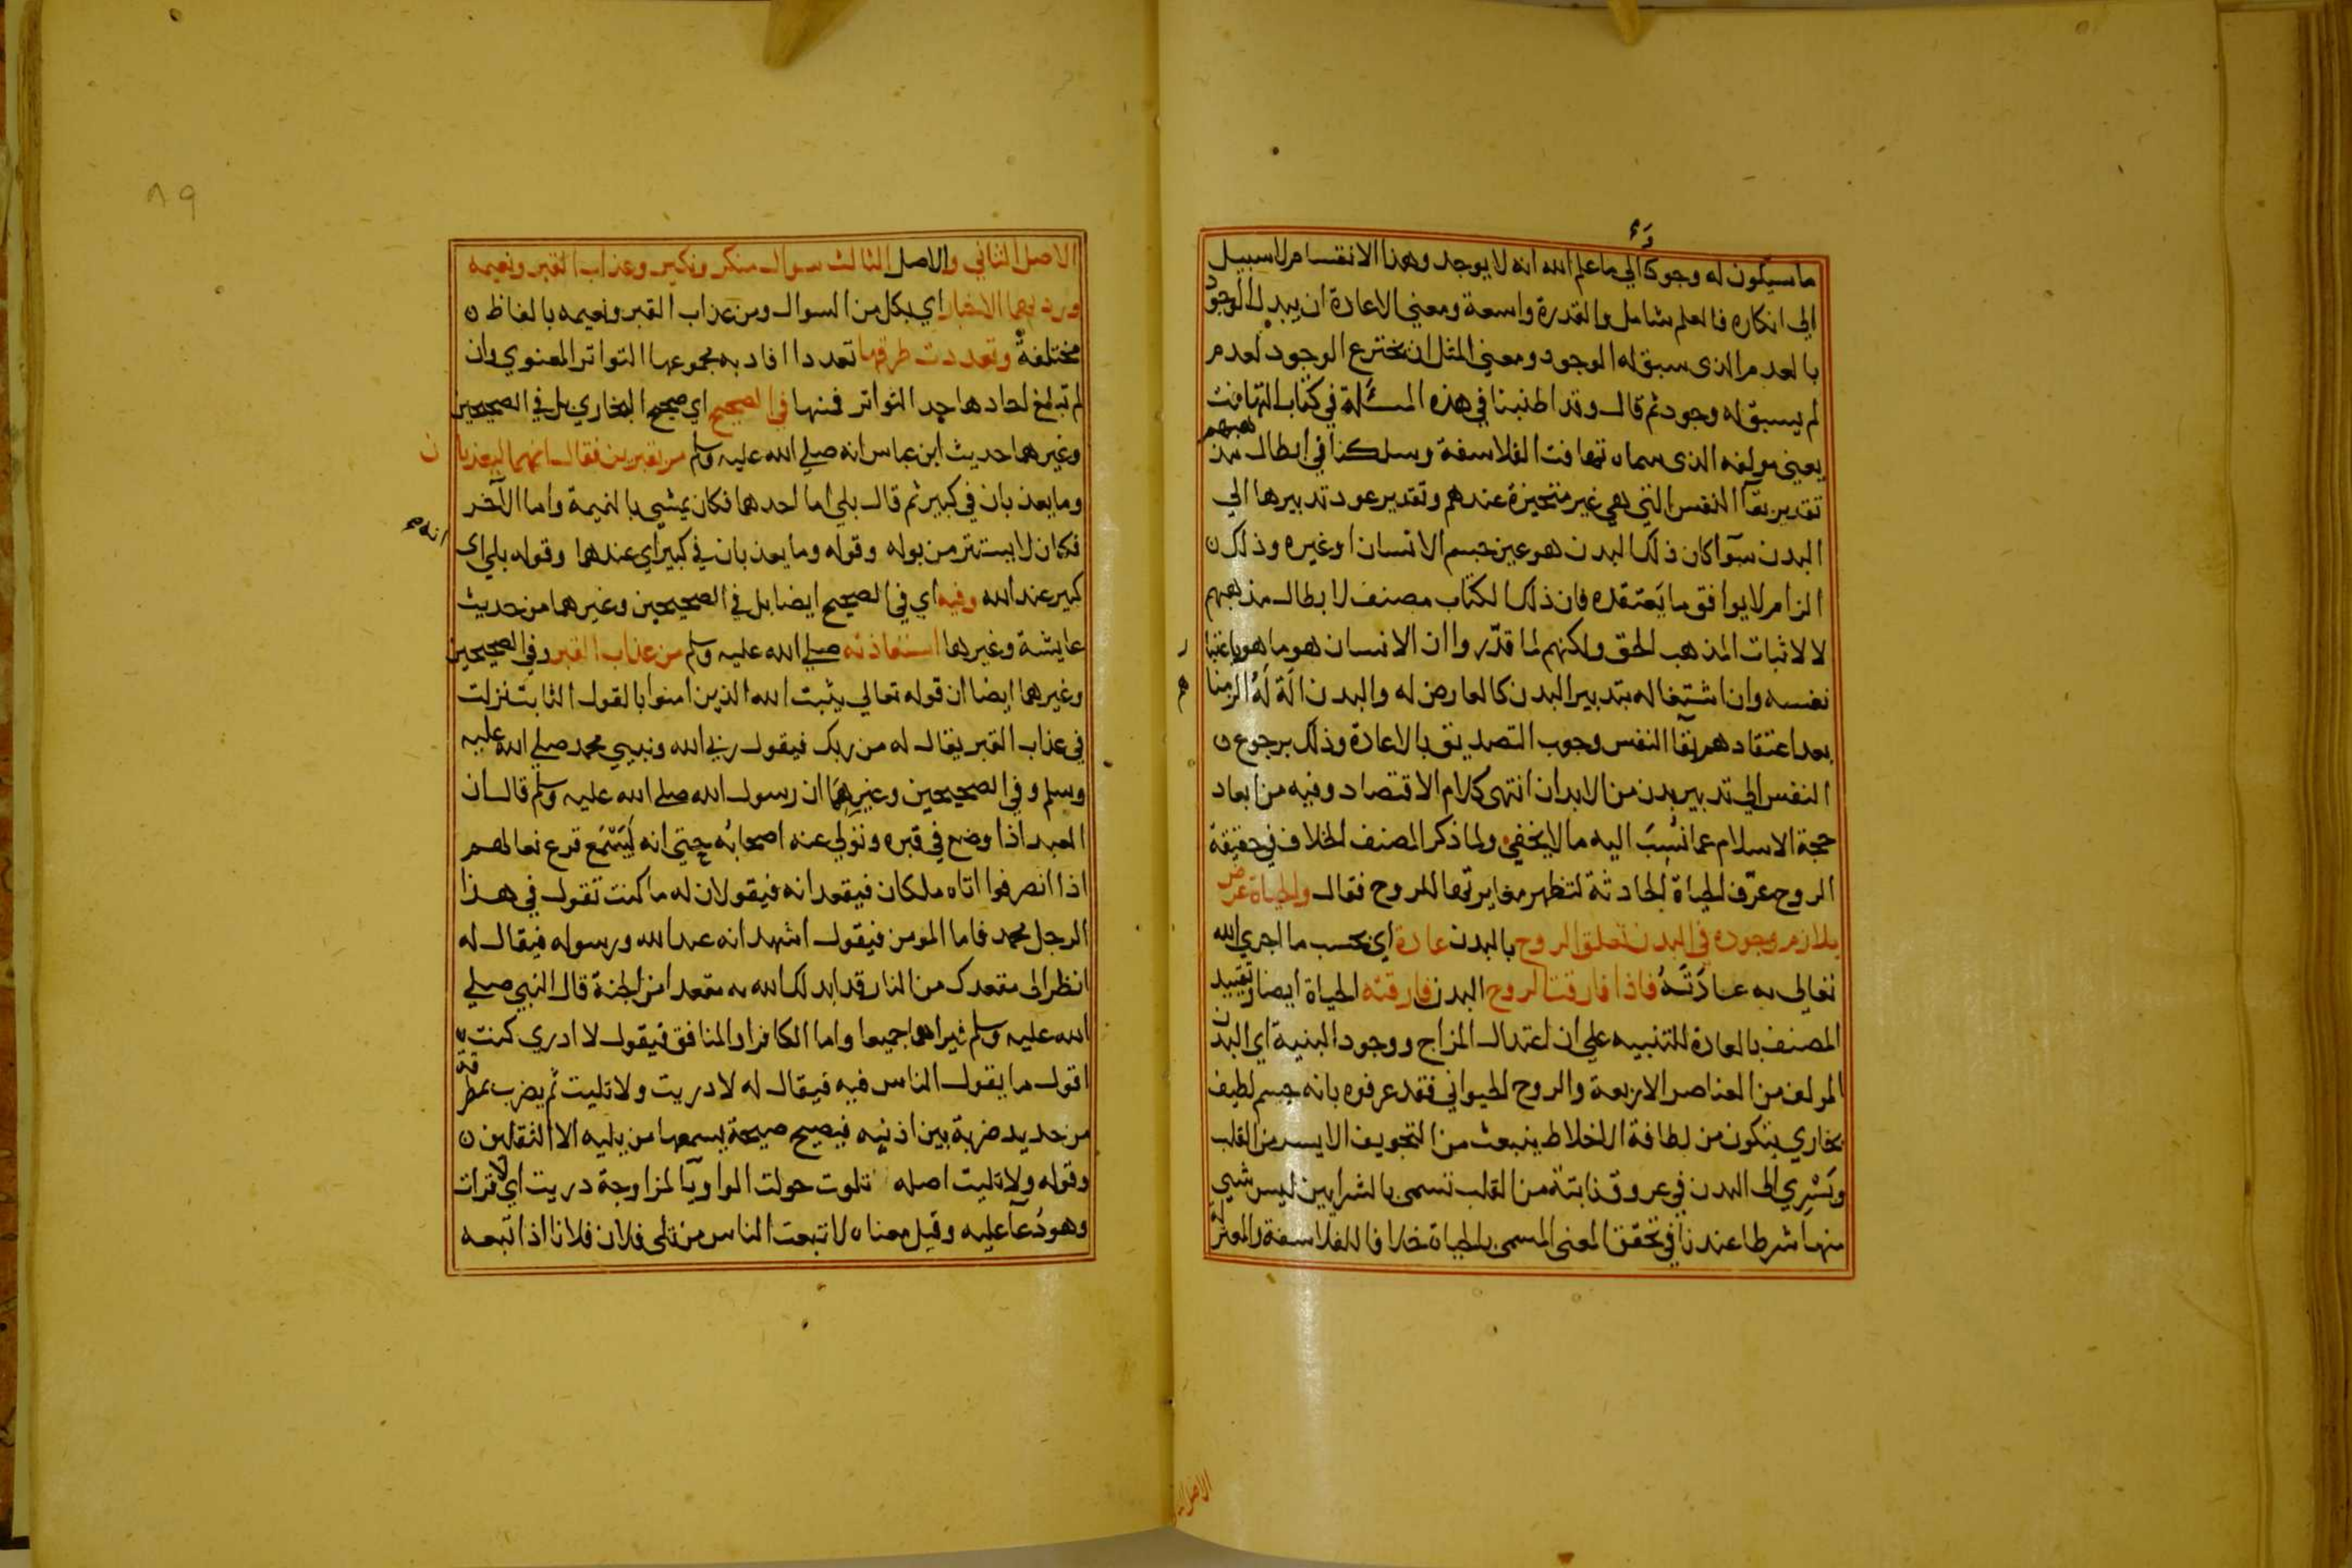 ما سيكون له وجود والي ما علم الله انه لا يوجد وهذا الانقسام لا سبيل
الي انكاره فالعلم شامل والقدرة واسعة ومعني الاعادة ان يبدل الوجود
بالعدم الذي سبق له الوجود ومعني المثل ان يخترع الوجود لعدم
لم يسبق له وجود ثم قال وقد اطنبنا في هذه المسئلة في كتاب التهافت
يعني مولفه الذي سماه تهافت الفلاسفة وسلكنا في ابطال مذهبهم
تقدير بقآ النفس التي هي غير متحيزة عندهم وتقدير عود تدبيرها الي
البدن سوآ كان ذلك البدن هو عين جسم الانسان او غيره وذلك
الزام لا يوافق ما يعتقده فان ذلك الكتاب مصنف لابطال مذهبهم
لا لاثبات المذهب الحق ولكنهم لما قدّروا ان الانسان هو ما هو باعتبار
نفسه وان اشتغاله بتدبير البدن كالعارض له والبدن الة له الزمناهم
بعد اعتقادهم بقآ النفس وجوب التصديق بالاعادة وذلك برجوع
النفس الي تدبير بدن من الابدان انتهى كلام الاقتصاد وفيه من ابعاد
حجة الاسلام عما نُسِبَ اليه ما لا يخفي ولما ذكر المصنف الخلاف في حقيقة
الروح عرّف الحياة الحادثة لتظهر مغايرتها للروح فقال والحياة عرض
يلازم وجوده في البدن تعلق الروح بالبدن عادة اي بحسب ما اجري الله
تعالي به عادَتَهُ فاذا فارقت الروح البدن فارقته الحياة ايضا وتقييد
المصنف بالعادة للتنبيه علي ان اعتدال المزاج ووجود البنية اي البدن
المولف من العناصر الاربعة والروح الحيواني فقد عرفوه بانه جسم لطيف
بخاري يتكون من لطافة الاخلاط ينبعث من التجويف الايسر من القلب
ويَسْرِي الى البدن في عروق نابتة من القلب تسمى بالشرايين ليس شيي
منها شرطا عندنا في تحقق المعنى المسمى بالحياة خلافا للفلاسفة والمعتزلة
الاصل الثاني والاصل الثالث سوال منكر ونكير وعذاب القبر ونعيمه
ورد بهما الاخبار اي بكل من السوال ومن عذاب القبر ونعيمه بالفاظ
مختلفة وتعددت طرقها تعددا افاد به مجموعها التواتر المعنوي وان
لم تبلغ احادها حد التواتر فمنها في الصحيح اي صحيح البخاري بل في الصحيحين
وغيرهما حديث ابن عباس انه صلي الله عليه وسلم مر بقبرين فقال انهما ليعذبان
وما يعذبان في كبير ثم قال بلي اما احدهما فكان يمشي بالنميمة واما الآخر
فكان لا يستتر من بوله وقوله وما يعذبان في كبير اي عندهما وقوله بلي اى انه
كبير عند الله وفيه اي في الصحيح ايضا بل في الصحيحين وغيرهما من حديث
عايشة وغيرها استعاذته صلي الله عليه وسلم من عذاب القبر وفي الصحيحين
وغيرهما ايضا ان قوله تعالي يثبت الله الذين امنوا بالقول الثابت نزلت
في عذاب القبر يقال له من ربك فيقول ربي الله ونبيي محمد صلي الله عليه
وسلم وفي الصحيحين وغيرِهِمَا ان رسول الله صلي الله عليه وسلم قال ان
العبد اذا وضع في قبره وتولي عنه اصحابُه حتي انه لَيَسْمَع قرع نعالهم
اذا انصرفوا اتاه ملكان فيقعدانه فيقولان له ما كنت تقول في هذا
الرجل محمد فاما المومن فيقول اشهد انه عبد الله ورسوله فيقال له
انظر الى مقعدك من النار قد ابدلك الله به مقعدا من الجنة قال النبي صلي
الله عليه وسلم فيراهما جميعا واما الكافر او المنافق فيقول لا ادري كنت
اقول ما يقول الناس فيه فيقال له لا دريت ولا تليت ثم يضرب بمطرقة
من حديد ضربة بين اذنيه فيصيح صيحة يسمعها من يليه الا الثقلين
وقوله ولا تليت اصله تلوت حولت الواو يآ لمزاوجة دريت اي لا قرات
وهو دُعآ عليه وقيل معناه لا تبعت الناس من تلى فلان فلانا اذا اتبعه
٨٩